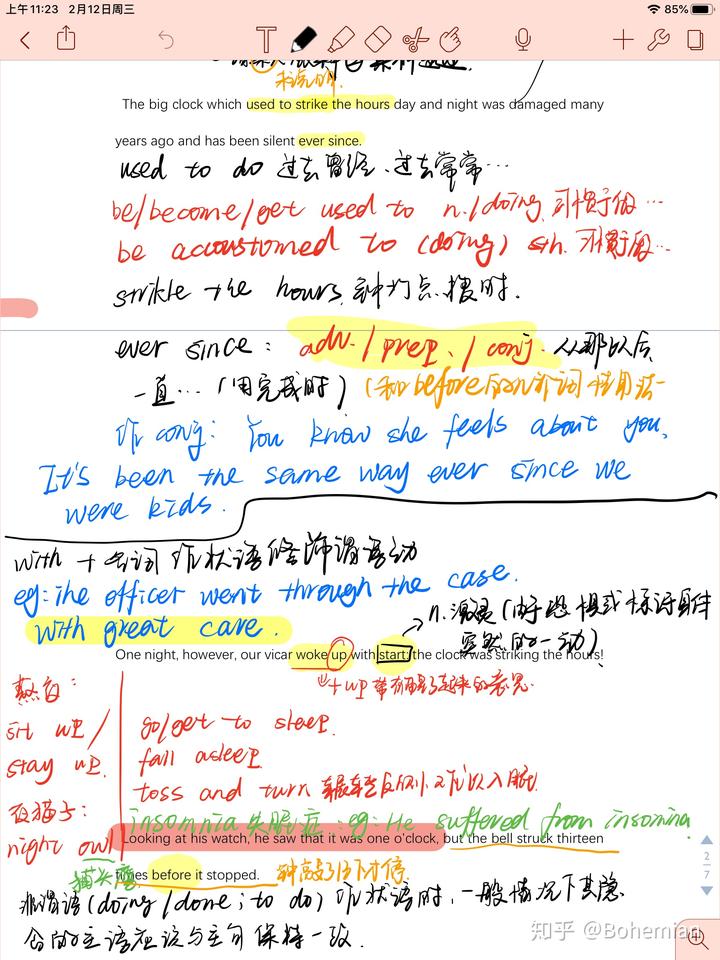 上午11:23 2月12日周三
85%
The big clock which used to strike the hours day and night was damaged many
years ago and has been silent ever since.
used to do 过去曾经、过去常常…
be/become/get used to n./doing 习惯于做…
be accoustomed to (doing) sth. 习惯于做…
strike the hours 钟的点、报时.
ever since: adv./prep./conj. 从那以后
一直…(用完成时) (和before
作conj: You know she feels about you,
It's been the same way ever since we
were kids.
with + 名词 作状语修饰谓语动
eg: the officer went through the case.
with great care.
n.
突然的一动)
One night, however, our vicar woke up with start: the clock was striking the hours!
+ up 带有 起来的意思
熬夜:
sit up/
stay up.
夜猫子:
night owl
猫头鹰
go/get to sleep.
fall asleep
toss and turn 辗转反侧,难以入眠
insomnia 失眠症 eg: He suffered from insomina.
Looking at his watch, he saw that it was one o'clock, but the bell struck thirteen
times before it stopped. 钟敲了13下才停.
非谓语(doing/done; to do) 作状语时,一般情况下其隐
含的主语应该与主句保持一致.
2/7
知乎 @Bohemian